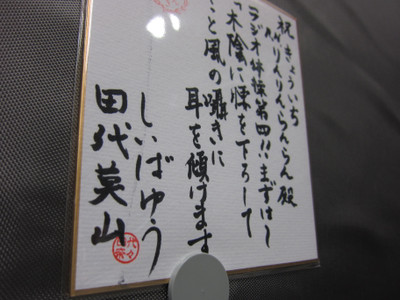 祝 きょういち
りんりんらんらん殿
ラジオ体操第四!!まずは!
「木陰に腰を下ろして
と風の囁きに
耳を傾けます
しいばゆう
田代英山